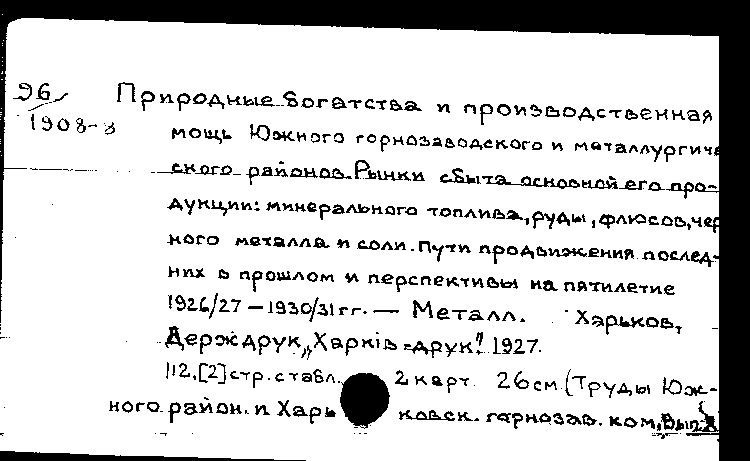 96/ Природные богатства и производственная
1908-8 мощь Южного горнозаводского и металлургиче
ского районов. Рынки сбыта основной его про-
дукции: минерального топлива, руды, флюсов, чер
ного металла и соли. Пути продвижения послед-
них в прошлом и перспективы на пятилетие
1926/27 — 1930/31 гг. — Металл. Харьков,
Держдрук „Харкiв-друк". 1927.
112, [2] стр. с табл. 2 карт. 26 см. (Труды Юж-
ного район. и Харь ковск. горнозав. ком, Вып.